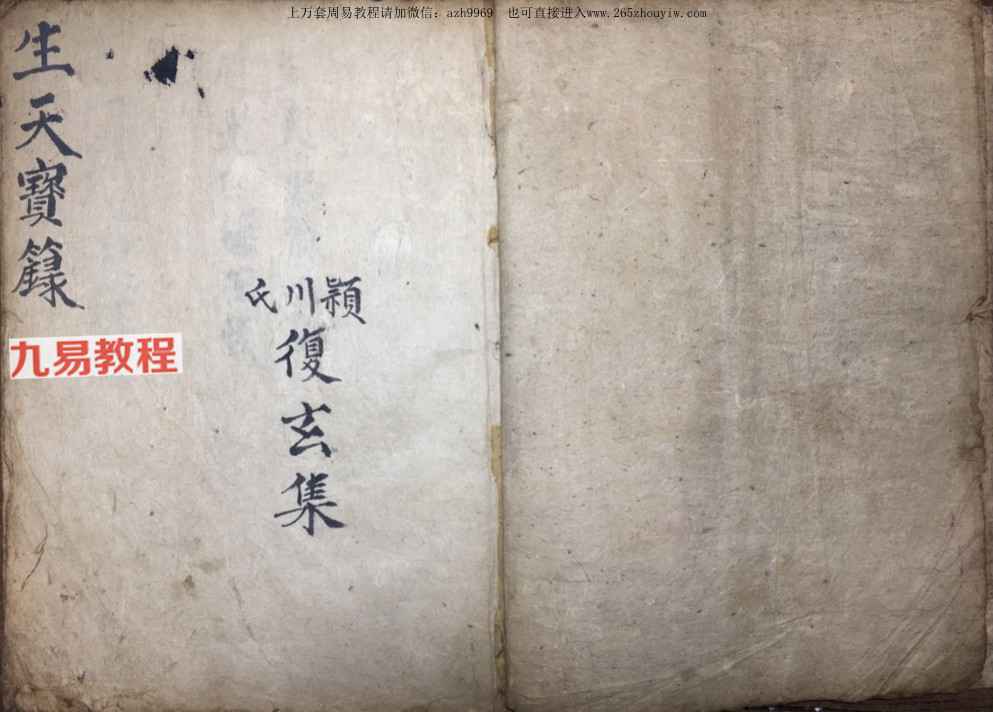 上万套周易教程请加微信：azh9969　也可直接进入www.265zhouyiw.com
生天寶籙
九易教程
穎川氏
復玄集